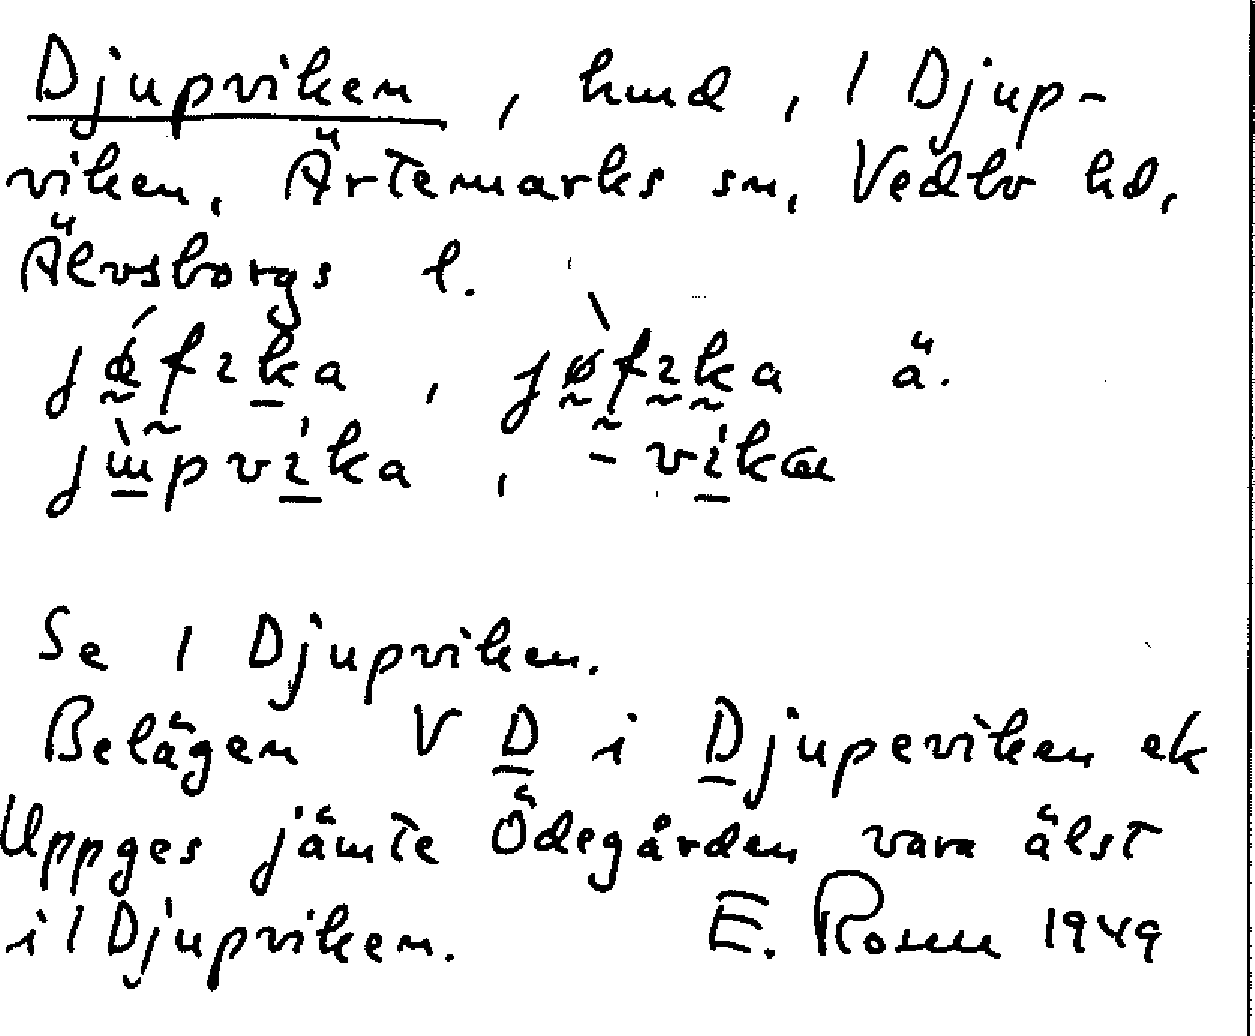 Djupviken, hmd, 1 Djup-
viken, Ärtemarks sn, Vedbo hd,
Älvsborgs l.
ä.
Se 1 Djupviken.
Belägen V D i Djupeviken ek
Uppges jämte Ödegården vara älst
i 1 Djupviken. E. Rosell 1949